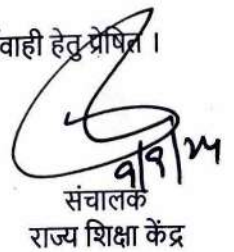 वाही हेतु प्रेषित ।
९/९/२५
संचालक
राज्य शिक्षा केंद्र